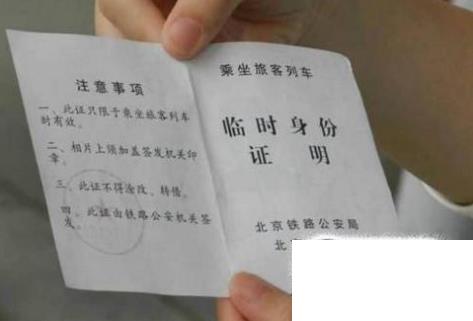 注意事项
一、此证只限于乘坐旅客列车
时有效。
二、相片上须加盖签发机关印
章。
三、此证不得涂改、转借。
四、此证由铁路公安机关签
发。
乘坐旅客列车
临时身份
证明
北京铁路公安局
北